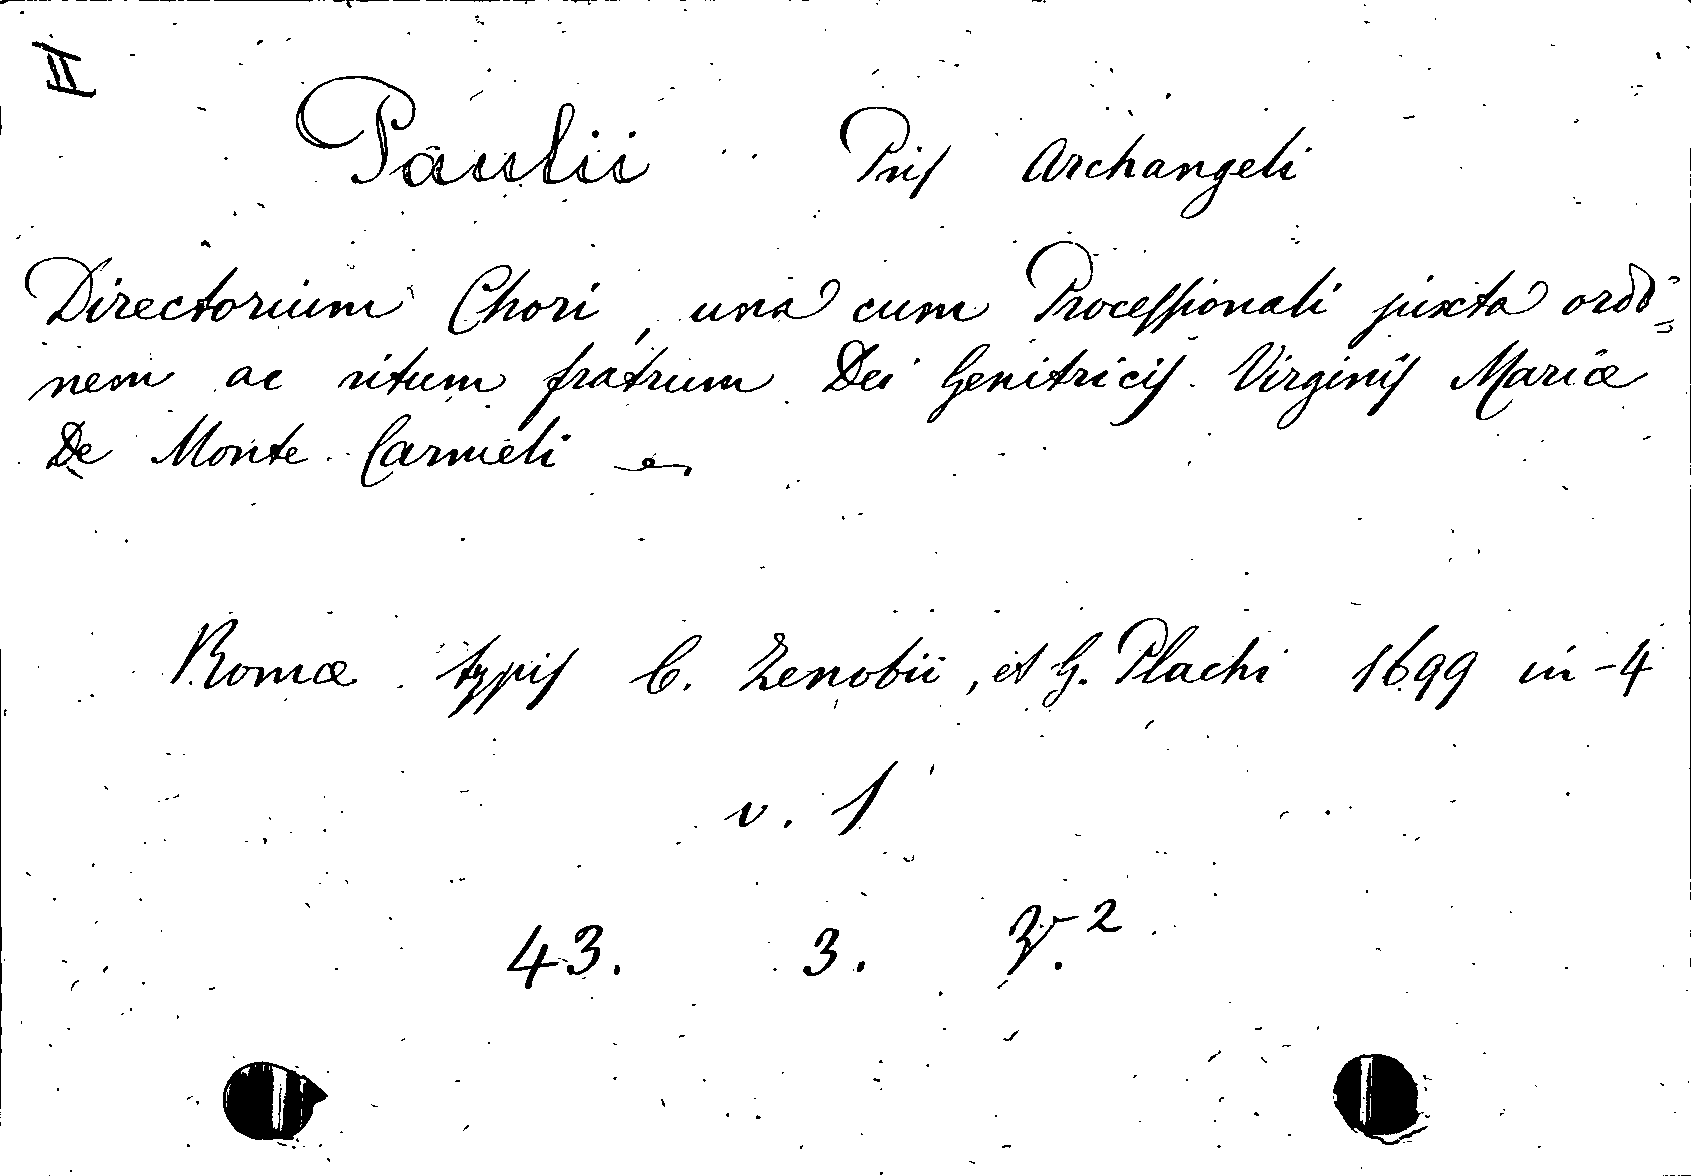 II
Paulii Pris Archangeli
Directorium Chori, una cum Processionali juxta ordi=
nem ac ritum fratrum Dei Genitricis Virginis Mariæ
De Monte Carmeli
Romæ typis C. Zenobii, et G. Plachi 1699 in-4
v. 1
43. 3. 2